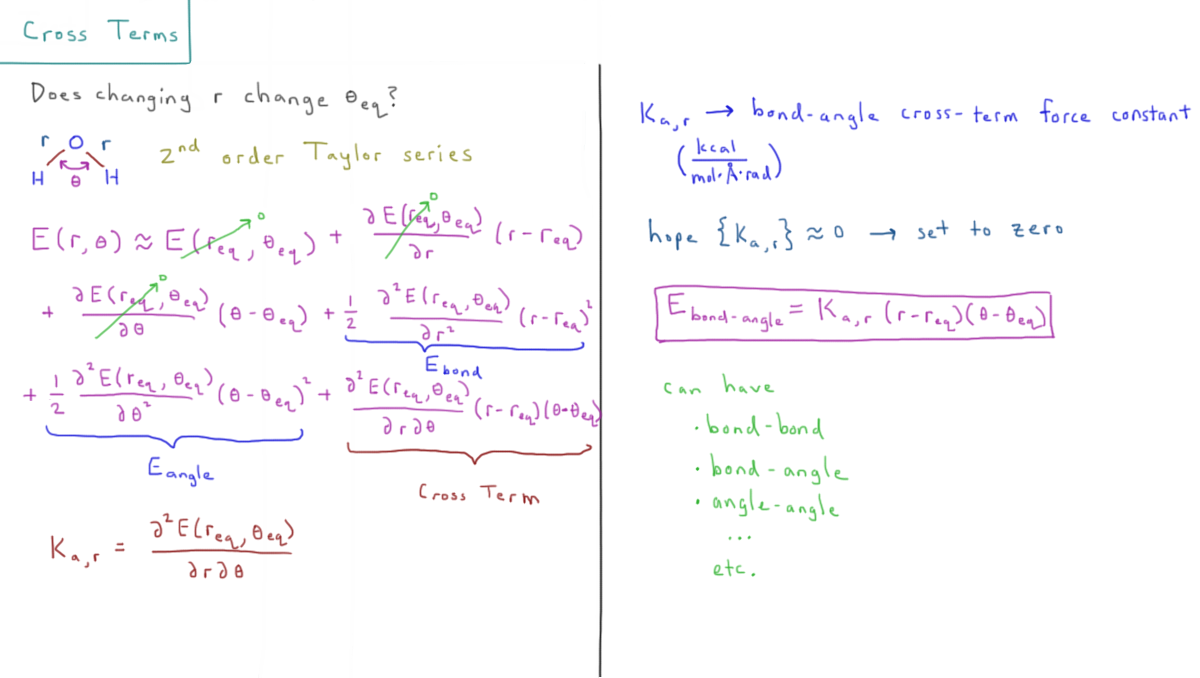 Cross Terms
Does changing r change θeq?
r O r
H θ H
2nd order Taylor series
E(r,θ) ≈ E(req, θeq) + ∂E(req,θeq)/∂r (r-req)
0 0
+ ∂E(req,θeq)/∂θ (θ-θeq) + 1/2 ∂²E(req,θeq)/∂r² (r-req)²
0
Ebond
+ 1/2 ∂²E(req,θeq)/∂θ² (θ-θeq)² + ∂²E(req,θeq)/∂r∂θ (r-req)(θ-θeq)
Eangle
Cross Term
Ka,r = ∂²E(req,θeq)/∂r∂θ
Ka,r → bond-angle cross-term force constant
(kcal/mol·Å·rad)
hope {Ka,r} ≈ 0 → set to zero
Ebond-angle = Ka,r (r-req)(θ-θeq)
can have
· bond-bond
· bond-angle
· angle-angle
...
etc.